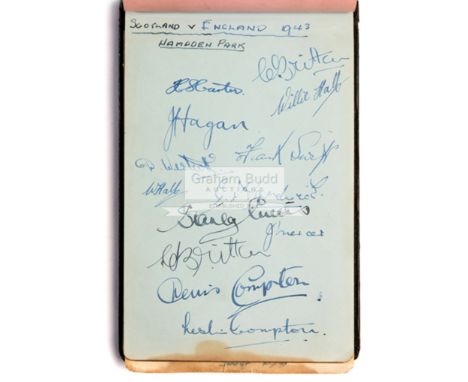 SCOTLAND V ENGLAND 1943
HAMPDEN PARK
C Britton
Willie Hall
H S Carter
J Hagan
Frank Swift
W Hall
Graham Budd
AUCTIONS
Stanley Cullis
J Mercer
C Britton
Denis Compton
Lesl. Compton.